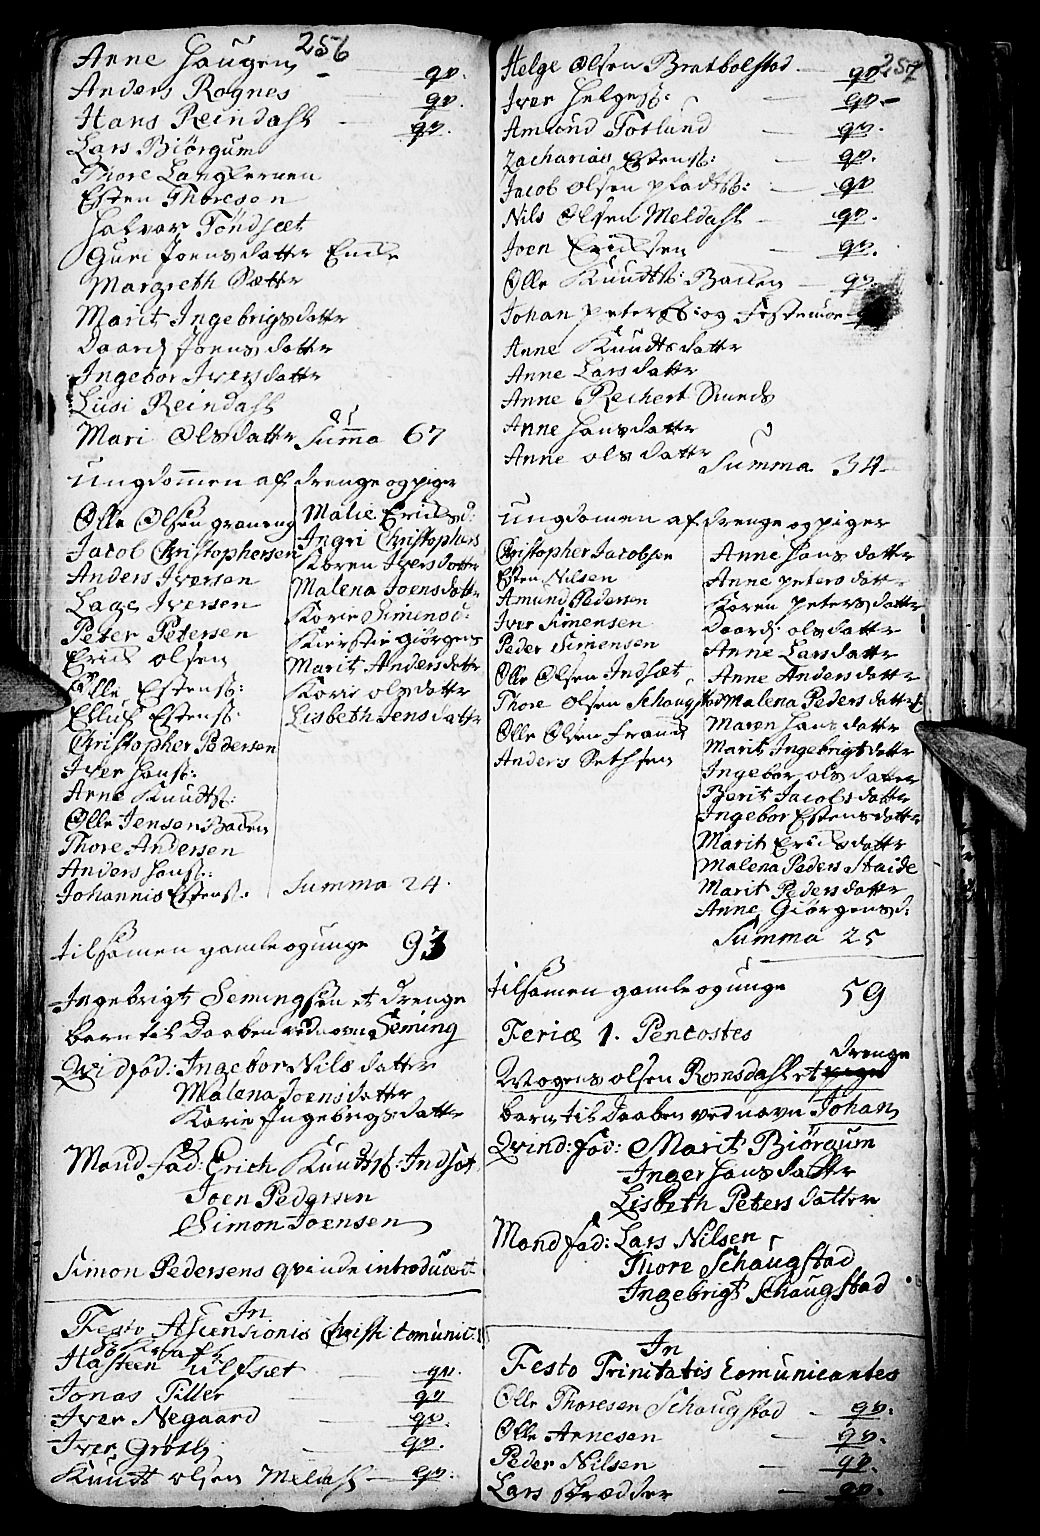 256
Anne Haugen
Anders Rognes — qv.
Hans Reindahl — qv.
Lars Biörgum — qv.
Thore Langlernen
Esten Thoresen
Halvor Töndsæt
Guri Joensdatter Ende
Margreth Sætter
Marit Ingebrigsdatter
Daardj Joens datter
Ingebor Iversdatter
Lusi Reindahl
Mari Olsdatter Summa 67
Ungdommen af drenge og piger
Olle Olsen graneng
Jacob Christophersen
Anders Iversen
Lage Iversen
Peter Petersen
Erich olsen
Olle Estens:
Elluf Estens:
Christopher Pedersen
Iver Hans:
Arne Knudts:
Olle Jensen Baden
Thore Andersen
Anders Hans:
Johannis Estens:
Malie Ericksd:
Ingri Christophers
Karen Iversdatter
Malena Joensdatter
Karie Simensd:
Kierstie Giörgens
Marit Andersdatter
Karie olsdatter
Lisbeth Jensdatter
Summa 24.
tilsamen gamle og unge 93
Ingebrigt Semingsen et drenge
barn til Daaben ved navn Seming
Qvid fad: Ingebor Nilsdatter
Malena Joensdatter
Karie Ingebrigsdatter
Mand fad: Erich Knudts: Indset
Joen Pedersen
Simon Joensen
Simon Pedersens qvinde introducert
In
Festo Ascensionis Christi Comunic:
Hasteen Ulfsæt — qv.
Jonas Tiller — qv
Iver Negaard — qv.
Iver Grötli — qv.
Knudt olsen Meldahl — qv.
257
Helge Olsen Bratbolstad — qv
Iver Helges: — qv
Amund Fotlund — qv.
Zacharias Estens: — qv.
Jacob olsen plads: — qv
Nils Olsen Meldahl — qv.
Joen Ericksen — qv.
Olle Knudts: Baden — qv.
Johan peters: og Festemöe
Anne Knudtsdatter
Anne Larsdatter
Anne Rechert Runds
Anne Hansdatter
Anne olsdatter Summa 34
Ungdomen af drenge og piger
Christopher Jacobsen
Esten Nilsen
Amund Pedersen
Iver Simensen
Peder Simensen
Olle Olsen Indsæt
Thore Olsen Schaugstad
Olle Olsen Frands
Anders Sethsen
Anne Hans datter
Anne peters datter
Karen peters datter
Daardj olsdatter
Anne Larsdatter
Anne Andersdatter
Malena Pedersdatter
Maren Hans datter
Marit Ingebrigtsdatter
Ingebor olsdatter
Berit Jacobsdatter
Ingebor Estensdatter
Marit Ericksdatter
Malena Peders Staide
Marit Pedersdatter
Anne Giörgensd:
Summa 25
tilsamen gamle og unge 59
Feriæ 1. Pentostes
Mogens olsen Romsdahl et drenge
barn til Daaben ved navn Johan
Qvind: fad: Marit Biörgum
Inger Hansdatter
Lisbeth Peters datter
Mand fad: Lars Nilsen
Thore Schaugstad
Ingebrigt Schaugstad
In
Festo Trinitatis Comunicantes
Olle Thoresen Schaugstad — qv.
Olle Arnesen — qv.
Peder Nilsen — qv.
Lars Skrædder — qv.